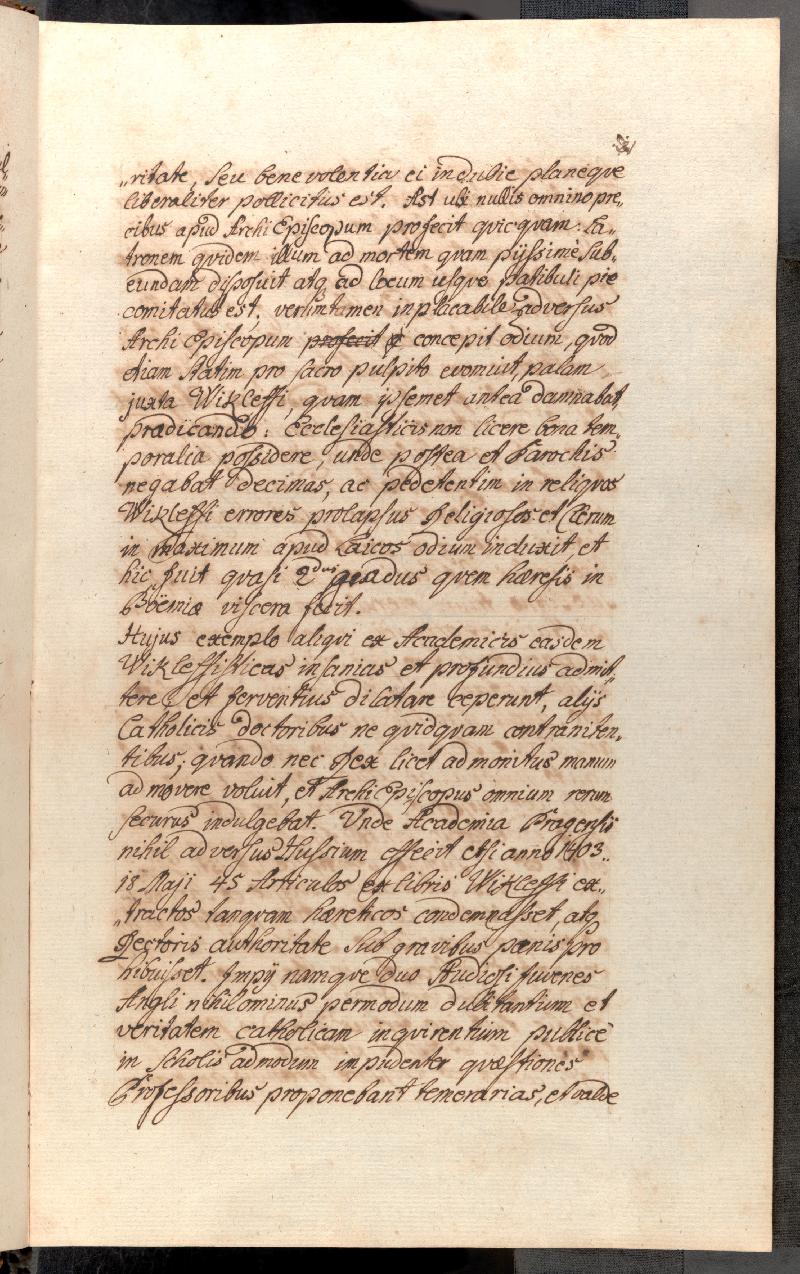 „ritate, seu benevolentia ei indubie planeque
liberaliter pollicitus est. Ast ubi nullis omnino pre„
cibus apud ArchiEpiscopum profecit quicquam: La„
tronem quidem illum ad mortem quam pijssimè sub„
eundam disposuit atq ad locum usque patibuli pie
comitatus est, verumtamen inplacabile adversus
Archi Episcopum profecit concepit odium, quod
etiam statim pro sacro pulpito evomuit, palam
juxta Wikleffi, quam ipsemet antea damnabat,
prædicando: Ecclesiasticis non licere bona tem„
poralia possidere, unde postea et Parochis
negabat decimas, ac pedetentim in reliquos
Wikleffi errores prolapsus Religiosos et Clerum
in maximum apud Laicos odium induxit, et
hic fuit quasi 2dus gradus quem hæresis in
Boëmiæ viscera fecit.
Hujus exemplo aliqui ex Academicis easdem
Wikleffisticas insanias et profundius admit„
tere, et ferventius dilatare ceperunt, alijs
Catholicis doctoribus ne quidquam contraniten„
tibus; quando nec Rex licet admonitus manum
admovere voluit, et ArchiEpiscopus omnium rerum
securus indulgebat. Unde Academia Pragensis
nihil adversus Hussium effecit etsi anno 1403..
18 Maji 45 Articulos ex libris Wikleffi ex„
„tractos tanquam hæreticos condemnasset, atq
Rectoris authoritate sub gravibus pœnis pro
hibuisset. Impij namque duo Studiosi juvenes
Angli nihilominus permodum dubitantium et
veritatem catholicam inquirentium publicè
in scholis admodum impudenter quæstiones
Professoribus proponebant temerarias, et valde